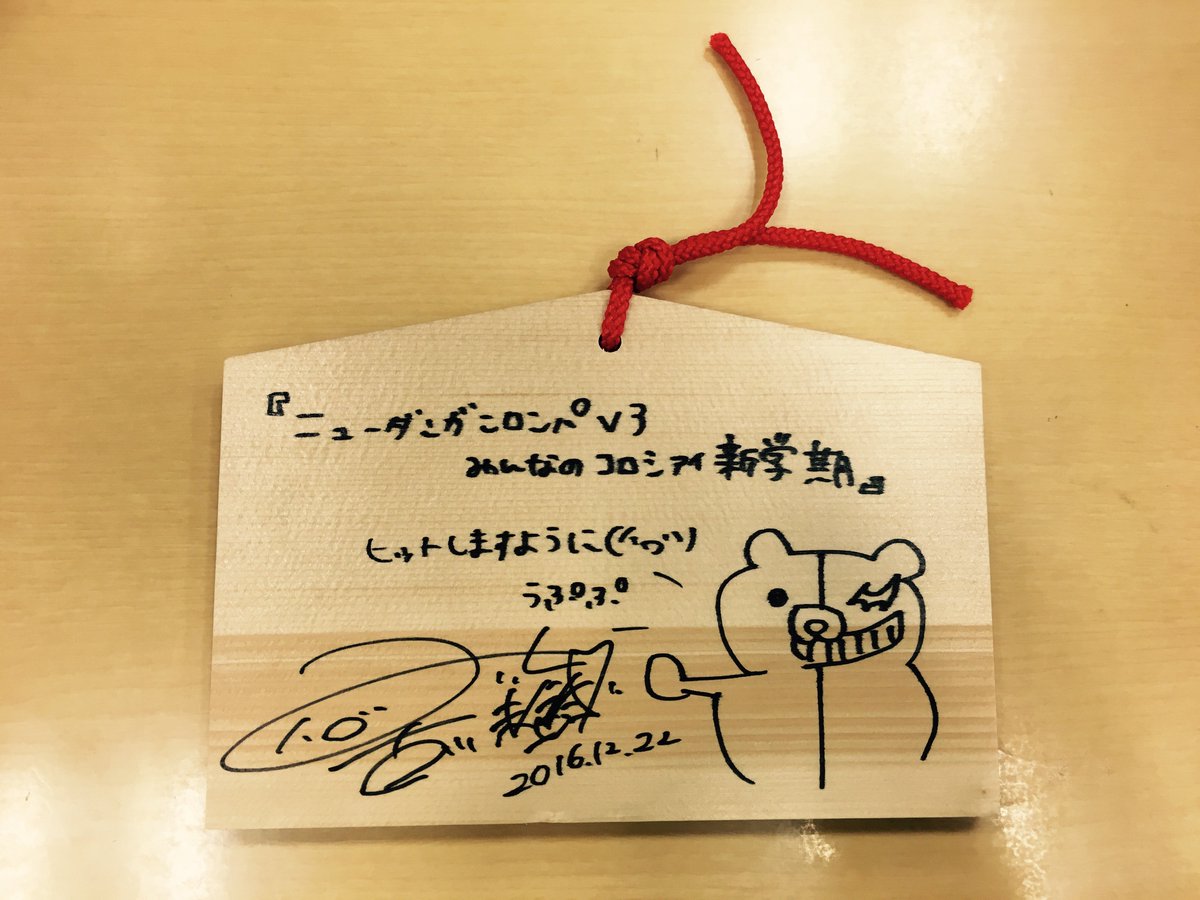 『ニューダンガンロンパV3
みんなのコロシアイ新学期』
ヒットしますように
うぷぷ
2016.12.22